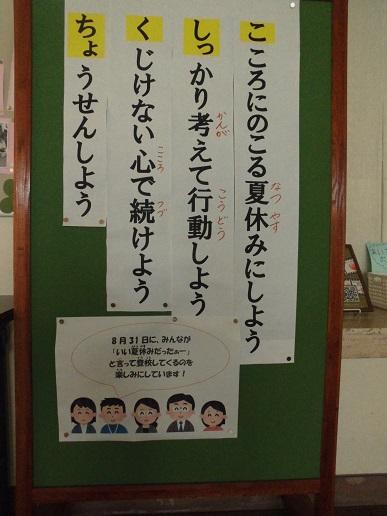 こころにのこる夏休みにしよう
しっかり考えて行動しよう
くじけない心で続けよう
ちょうせんしよう
8月31日に、みんなが
「いい夏休みだったぁー」
と言って登校してくるのを
楽しみにしています！